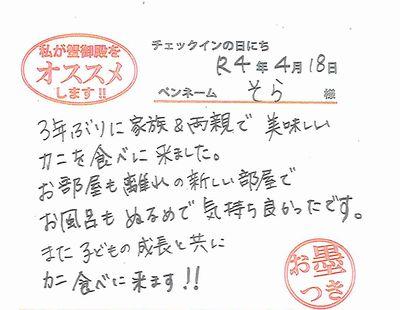 私が蟹御殿を
オススメ
します!!
チェックインの日にち
R4年4月18日
ペンネーム そら 様
3年ぶりに家族&両親で美味しい
カニを食べに来ました。
お部屋も離れの新しい部屋で
お風呂もぬるめで気持ち良かったです。
また子どもの成長と共に
カニ食べに来ます!!
お墨
つき